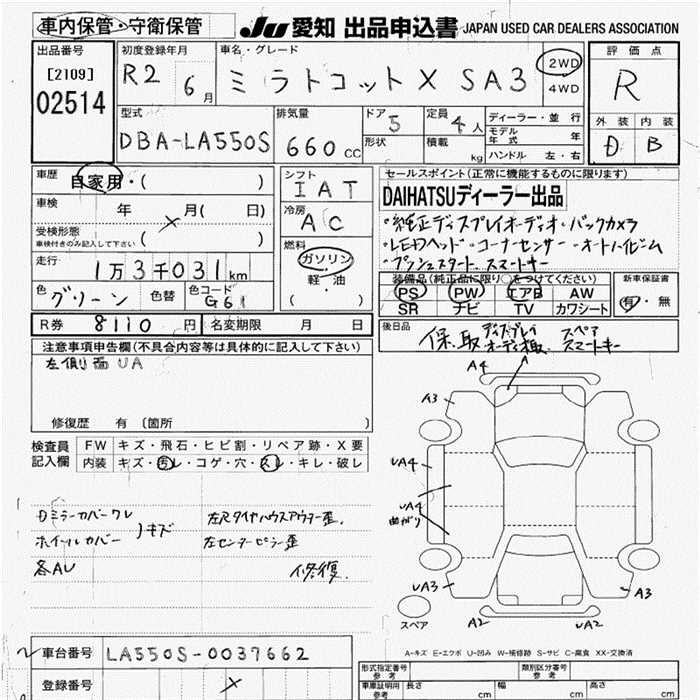 車内保管・守衛保管
JU 愛知 出品申込書 JAPAN USED CAR DEALERS ASSOCIATION
出品番号 初度登録年月 車名・グレード 評価点
[2109] R2 6月 ミラトコット X SA3 2WD R
02514 4WD
型式 排気量 ドア 定員 ディーラー・並行 外装 内装
5 4人 モデル年式 年
DBA-LA550S 660cc 形状 積載 kg ハンドル 左・右 D B
車歴 自家用・( ) シフト セールスポイント(正常に機能するものに限ります)
IAT DAIHATSUディーラー出品
車検 年 月( 日) 冷房 ・純正ディスプレイオーディオ・バックカメラ
受検形態 AC ・LEDヘッド・コーナーセンサー・オートハイビーム
車検付きのみ記入して下さい ( ) 燃料 ・プッシュスタート、スマートキー
走行 ガソリン 装備品(純正品に限り○をつけてください) 新車保証書
1万3千031km 軽油 PS PW エアB AW 有・無
色 グリーン 色替 色コード G61 ( ) SR ナビ TV カワシート
R券 8110円 名変期限 月 日 後日品
保、取 ディスプレイオーディオ スペアスマートキー
注意事項申告欄(不具合内容等は具体的に記入して下さい)
左側面UA
修復歴 有 〔箇所
検査員記入欄 FW キズ・飛石・ヒビ割・リペア跡・X要
内装 キズ・汚レ・コゲ・穴・スレ・キレ・破レ
A4
A
A3
UA4 A4
曲がり
UA3 A3
A2 UA2
スペア
ドミラーカバーワレ 左Rタイヤハウスアウター歪、
ホイールカバー キズ 左センターピラー歪
各AU 修復、
A-キズ E-エクボ U-凹み W-補修跡 S-サビ C-腐食 XX-交換済
車台番号 LA550S-0037662
型式指定番号 参考 類別区分番号 参考
登録番号
車庫証明用 参考 長さ cm 幅 cm 高さ cm